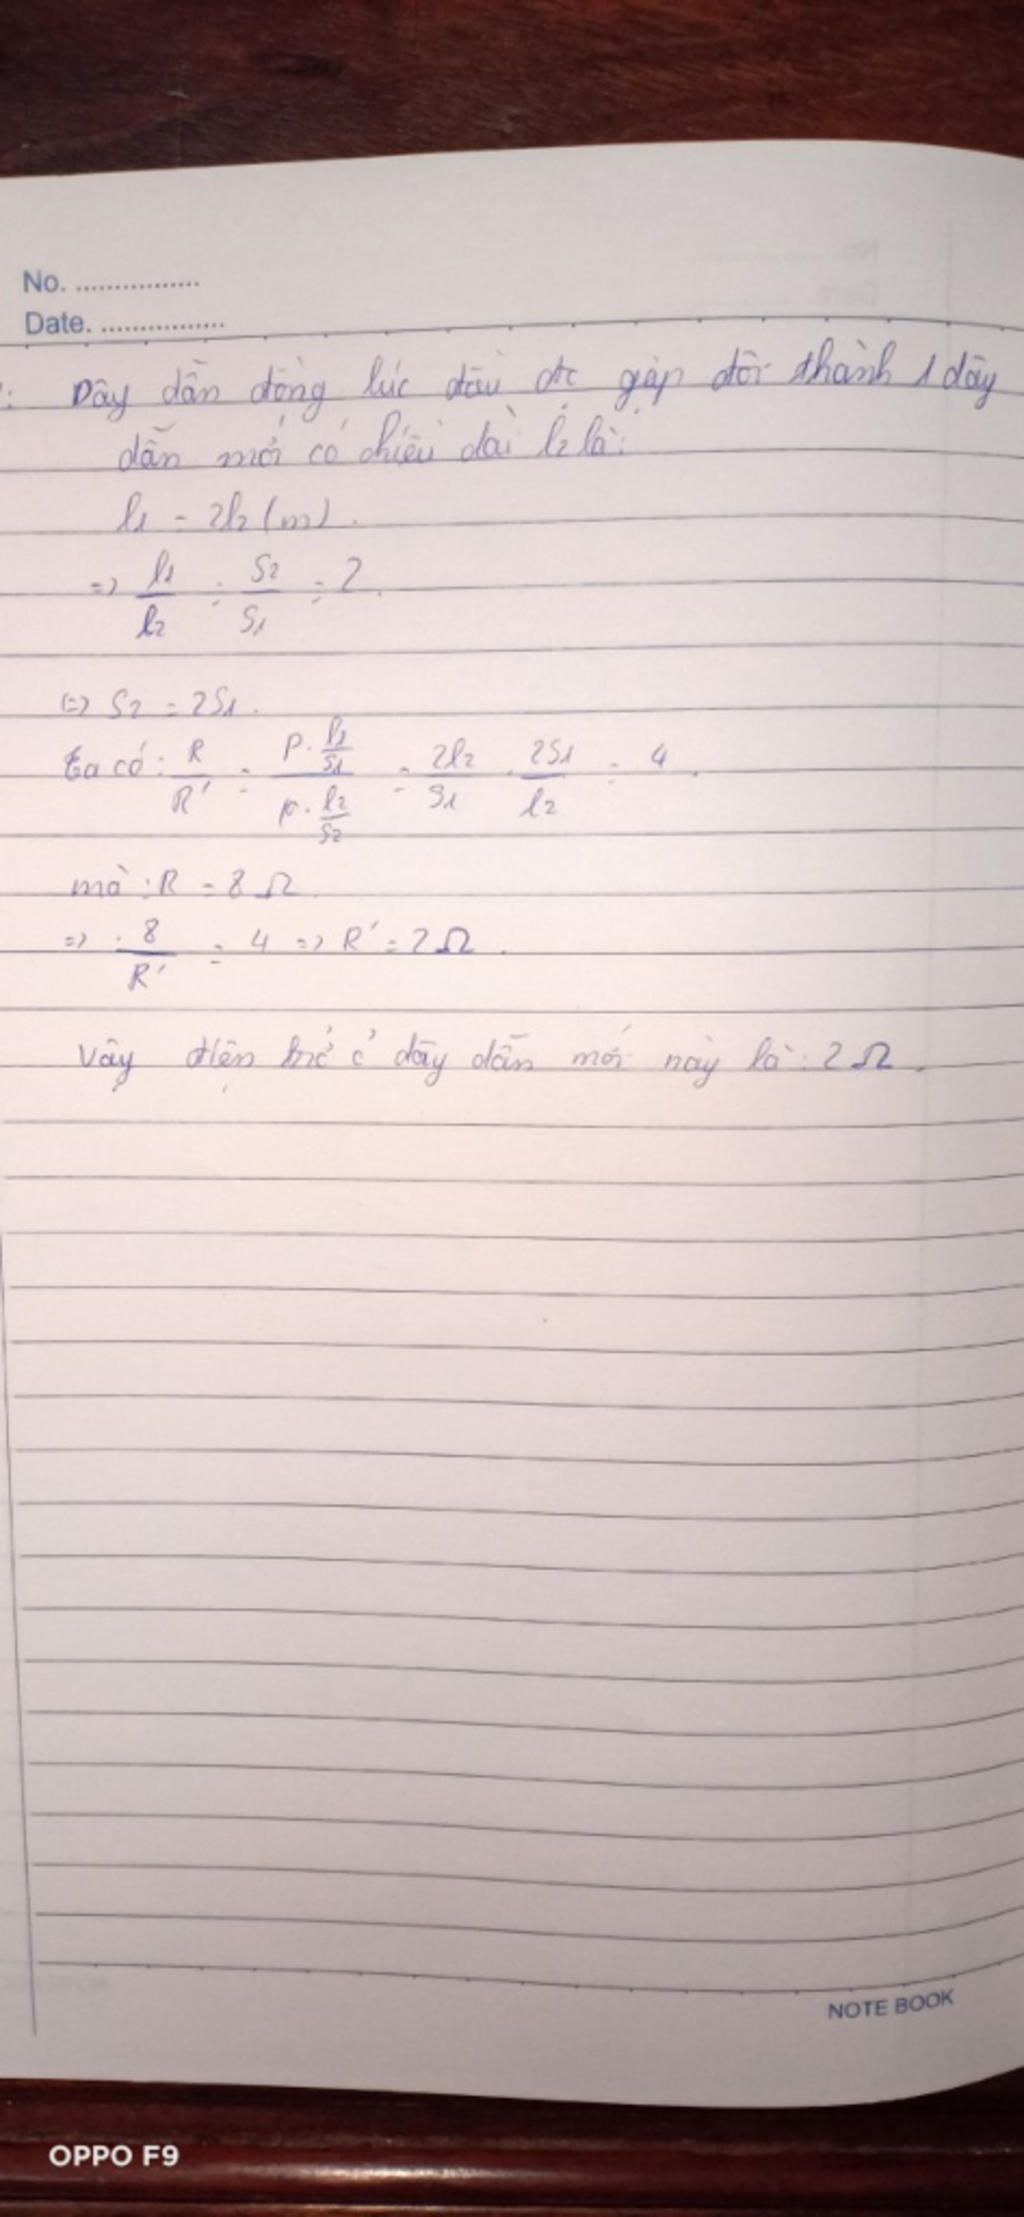 No. ................
Date. ................
: Dây dẫn đồng lúc đầu đc gập đôi thành 1 dây
dẫn mới có chiều dài l2 là:
l1 = 2l2 (m).
=> l1/l2 = S2/S1 = 2.
(=) S2 = 2S1.
ta có: R/R' = (p. l1/S1)/(p. l2/S2) = 2l2/S1 . 2S1/l2 = 4.
mà: R = 8 Ω.
=> 8/R' = 4 => R' = 2Ω.
Vậy điện trở ở dây dẫn mới này là: 2Ω.
NOTE BOOK
OPPO F9